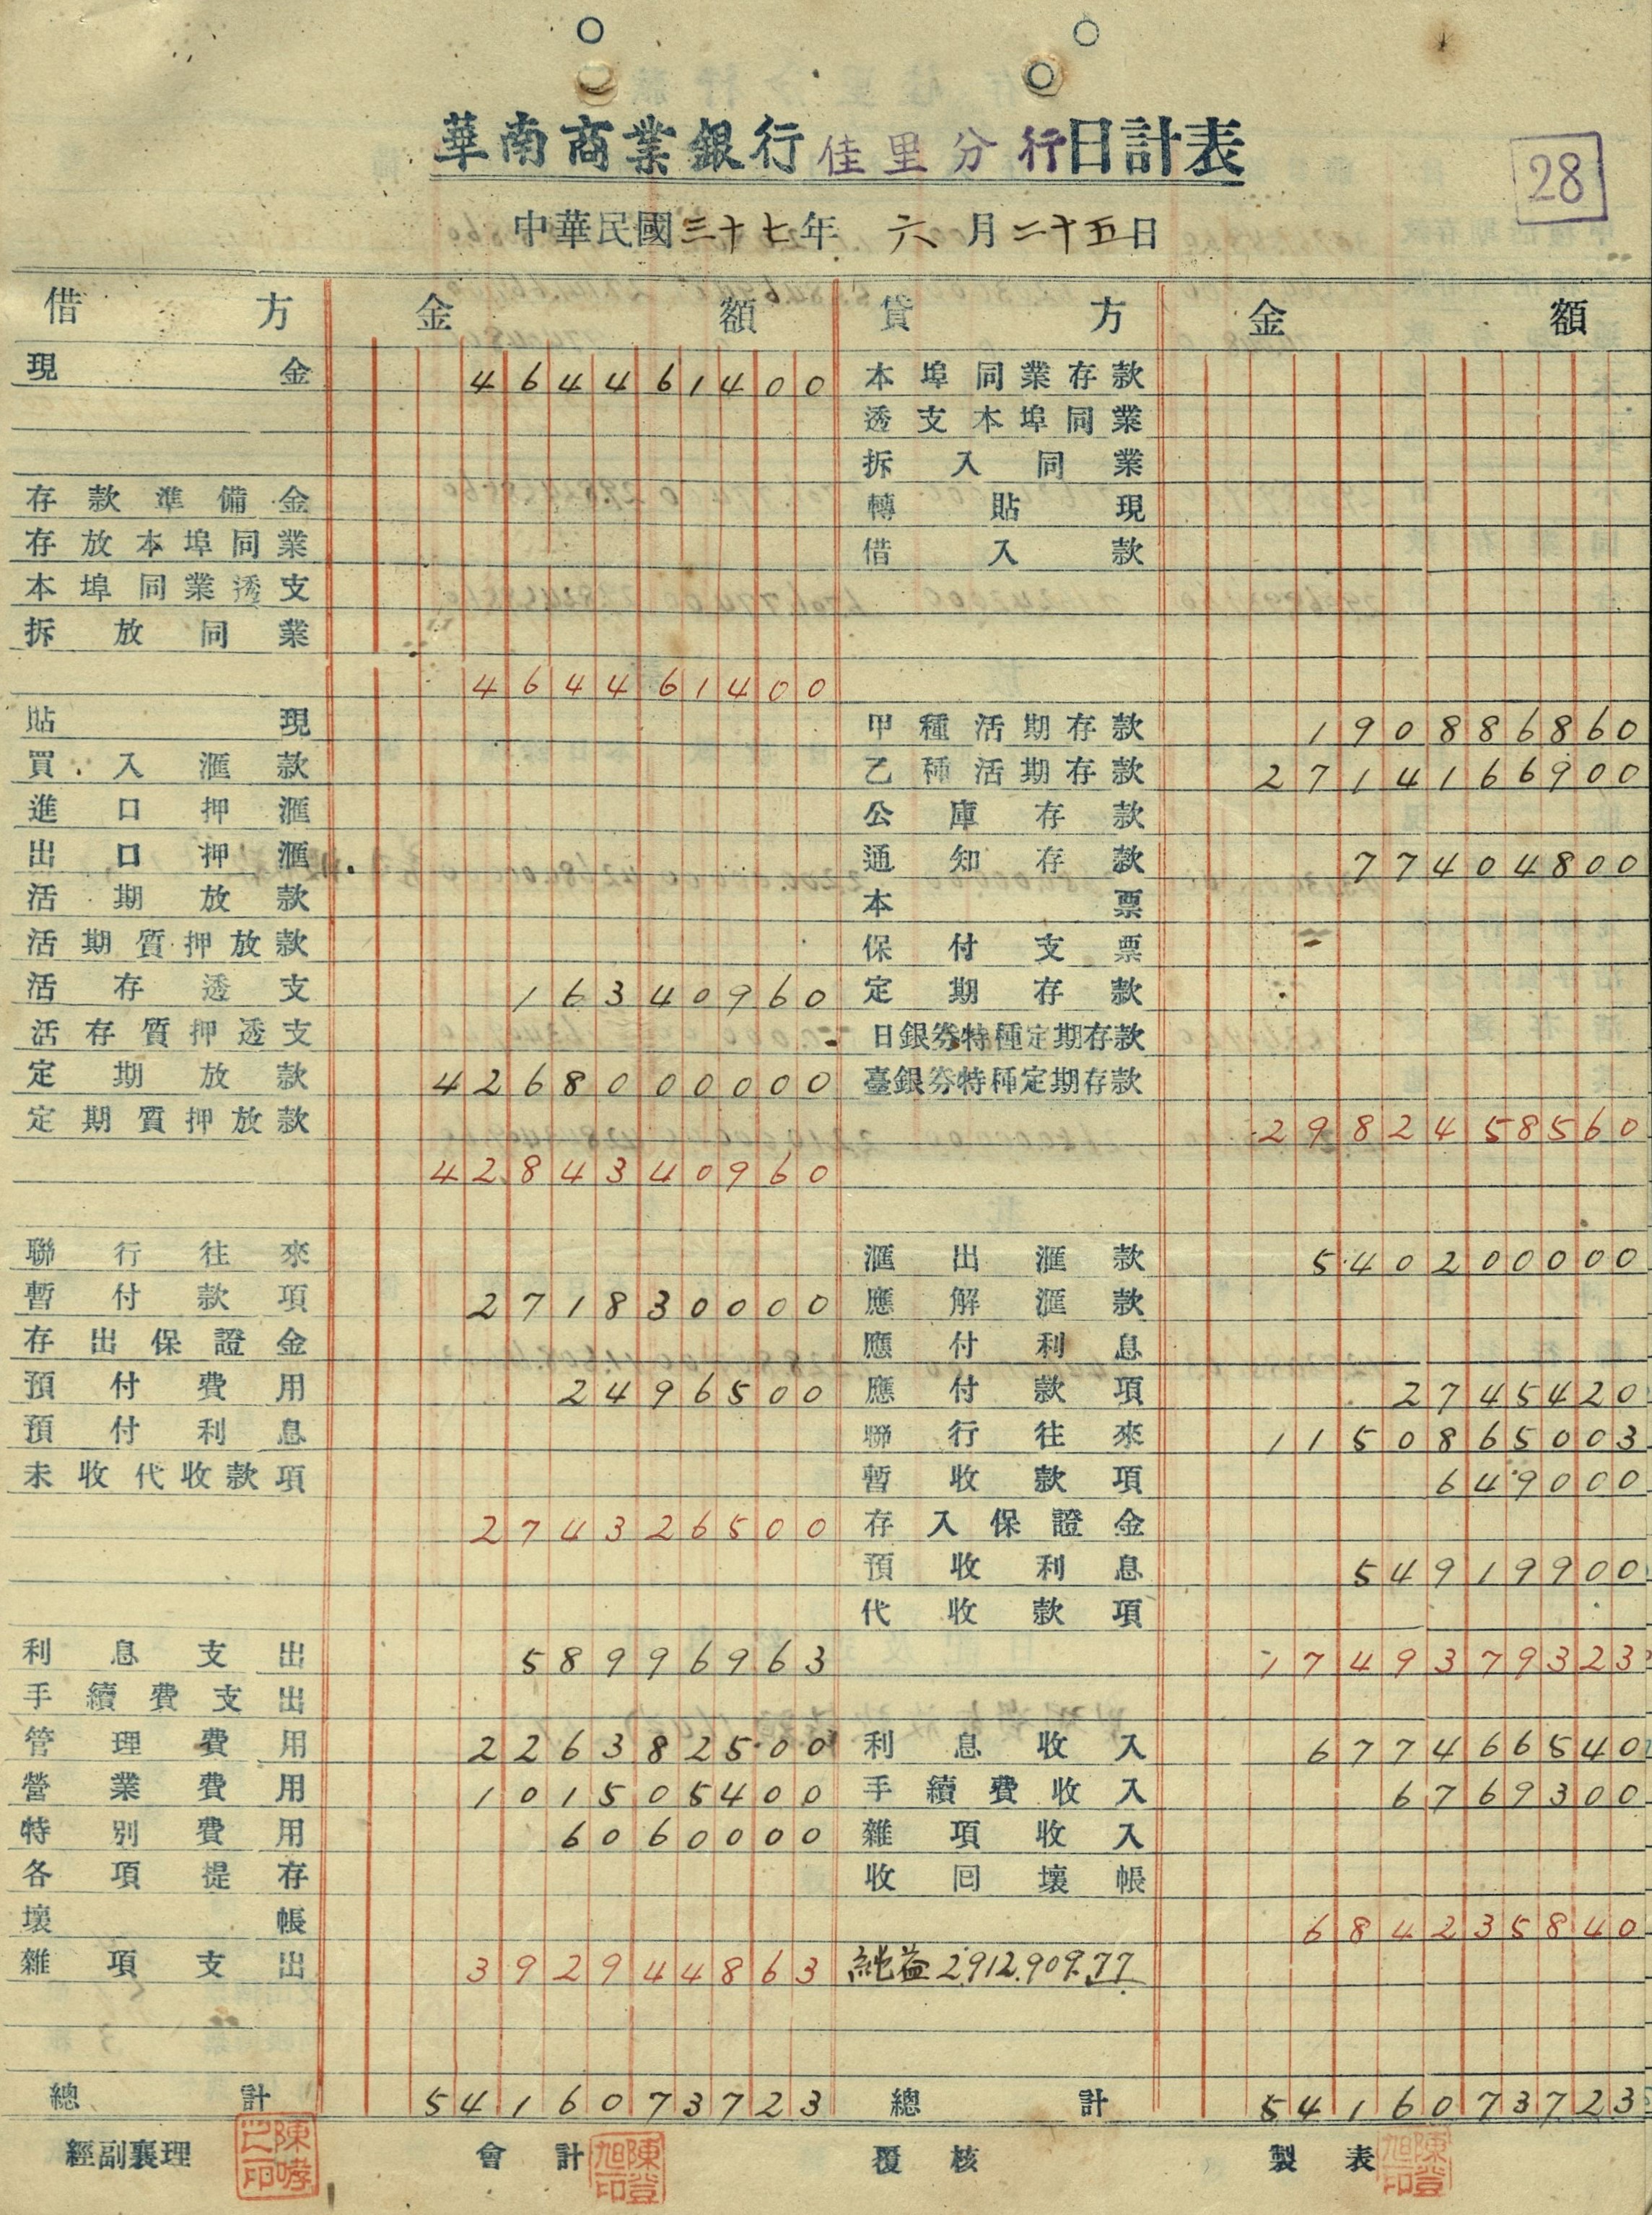 華南商業銀行佳里分行日計表
28
中華民國三十七年 六月二十五日
借方 金額 貸方 金額
現金 464461400 本埠同業存款
透支本埠同業
拆入同業
存款準備金 轉貼現
存放本埠同業 借入款
本埠同業透支
拆放同業
464461400
貼現 甲種活期存款 190886860
買入滙款 乙種活期存款 2714166900
進口押滙 公庫存款
出口押滙 通知存款 77404800
活期放款 本票
活期質押放款 保付支票
活存透支 16340960 定期存款
活存質押透支 日銀券特種定期存款
定期放款 4268000000 臺銀券特種定期存款
定期質押放款 2982458560
4284340960
聯行往來 滙出滙款 540200000
暫付款項 271830000 應解滙款
存出保證金 應付利息
預付費用 2496500 應付款項 2745420
預付利息 聯行往來 1150865003
未收代收款項 暫收款項 649000
274326500 存入保證金
預收利息 54919900
代收款項
利息支出 58996963 1749379323
手續費支出
管理費用 226382500 利息收入 677466540
營業費用 101505400 手續費收入 6769300
特別費用 6060000 雜項收入
各項提存 收回壞帳
壞帳 684235840
雜項支出 392944863 純益 2,912,909.77
總計 5416073723 總計 5416073723
經副襄理 會計 陳登旭印 覆核 製表 陳登旭印